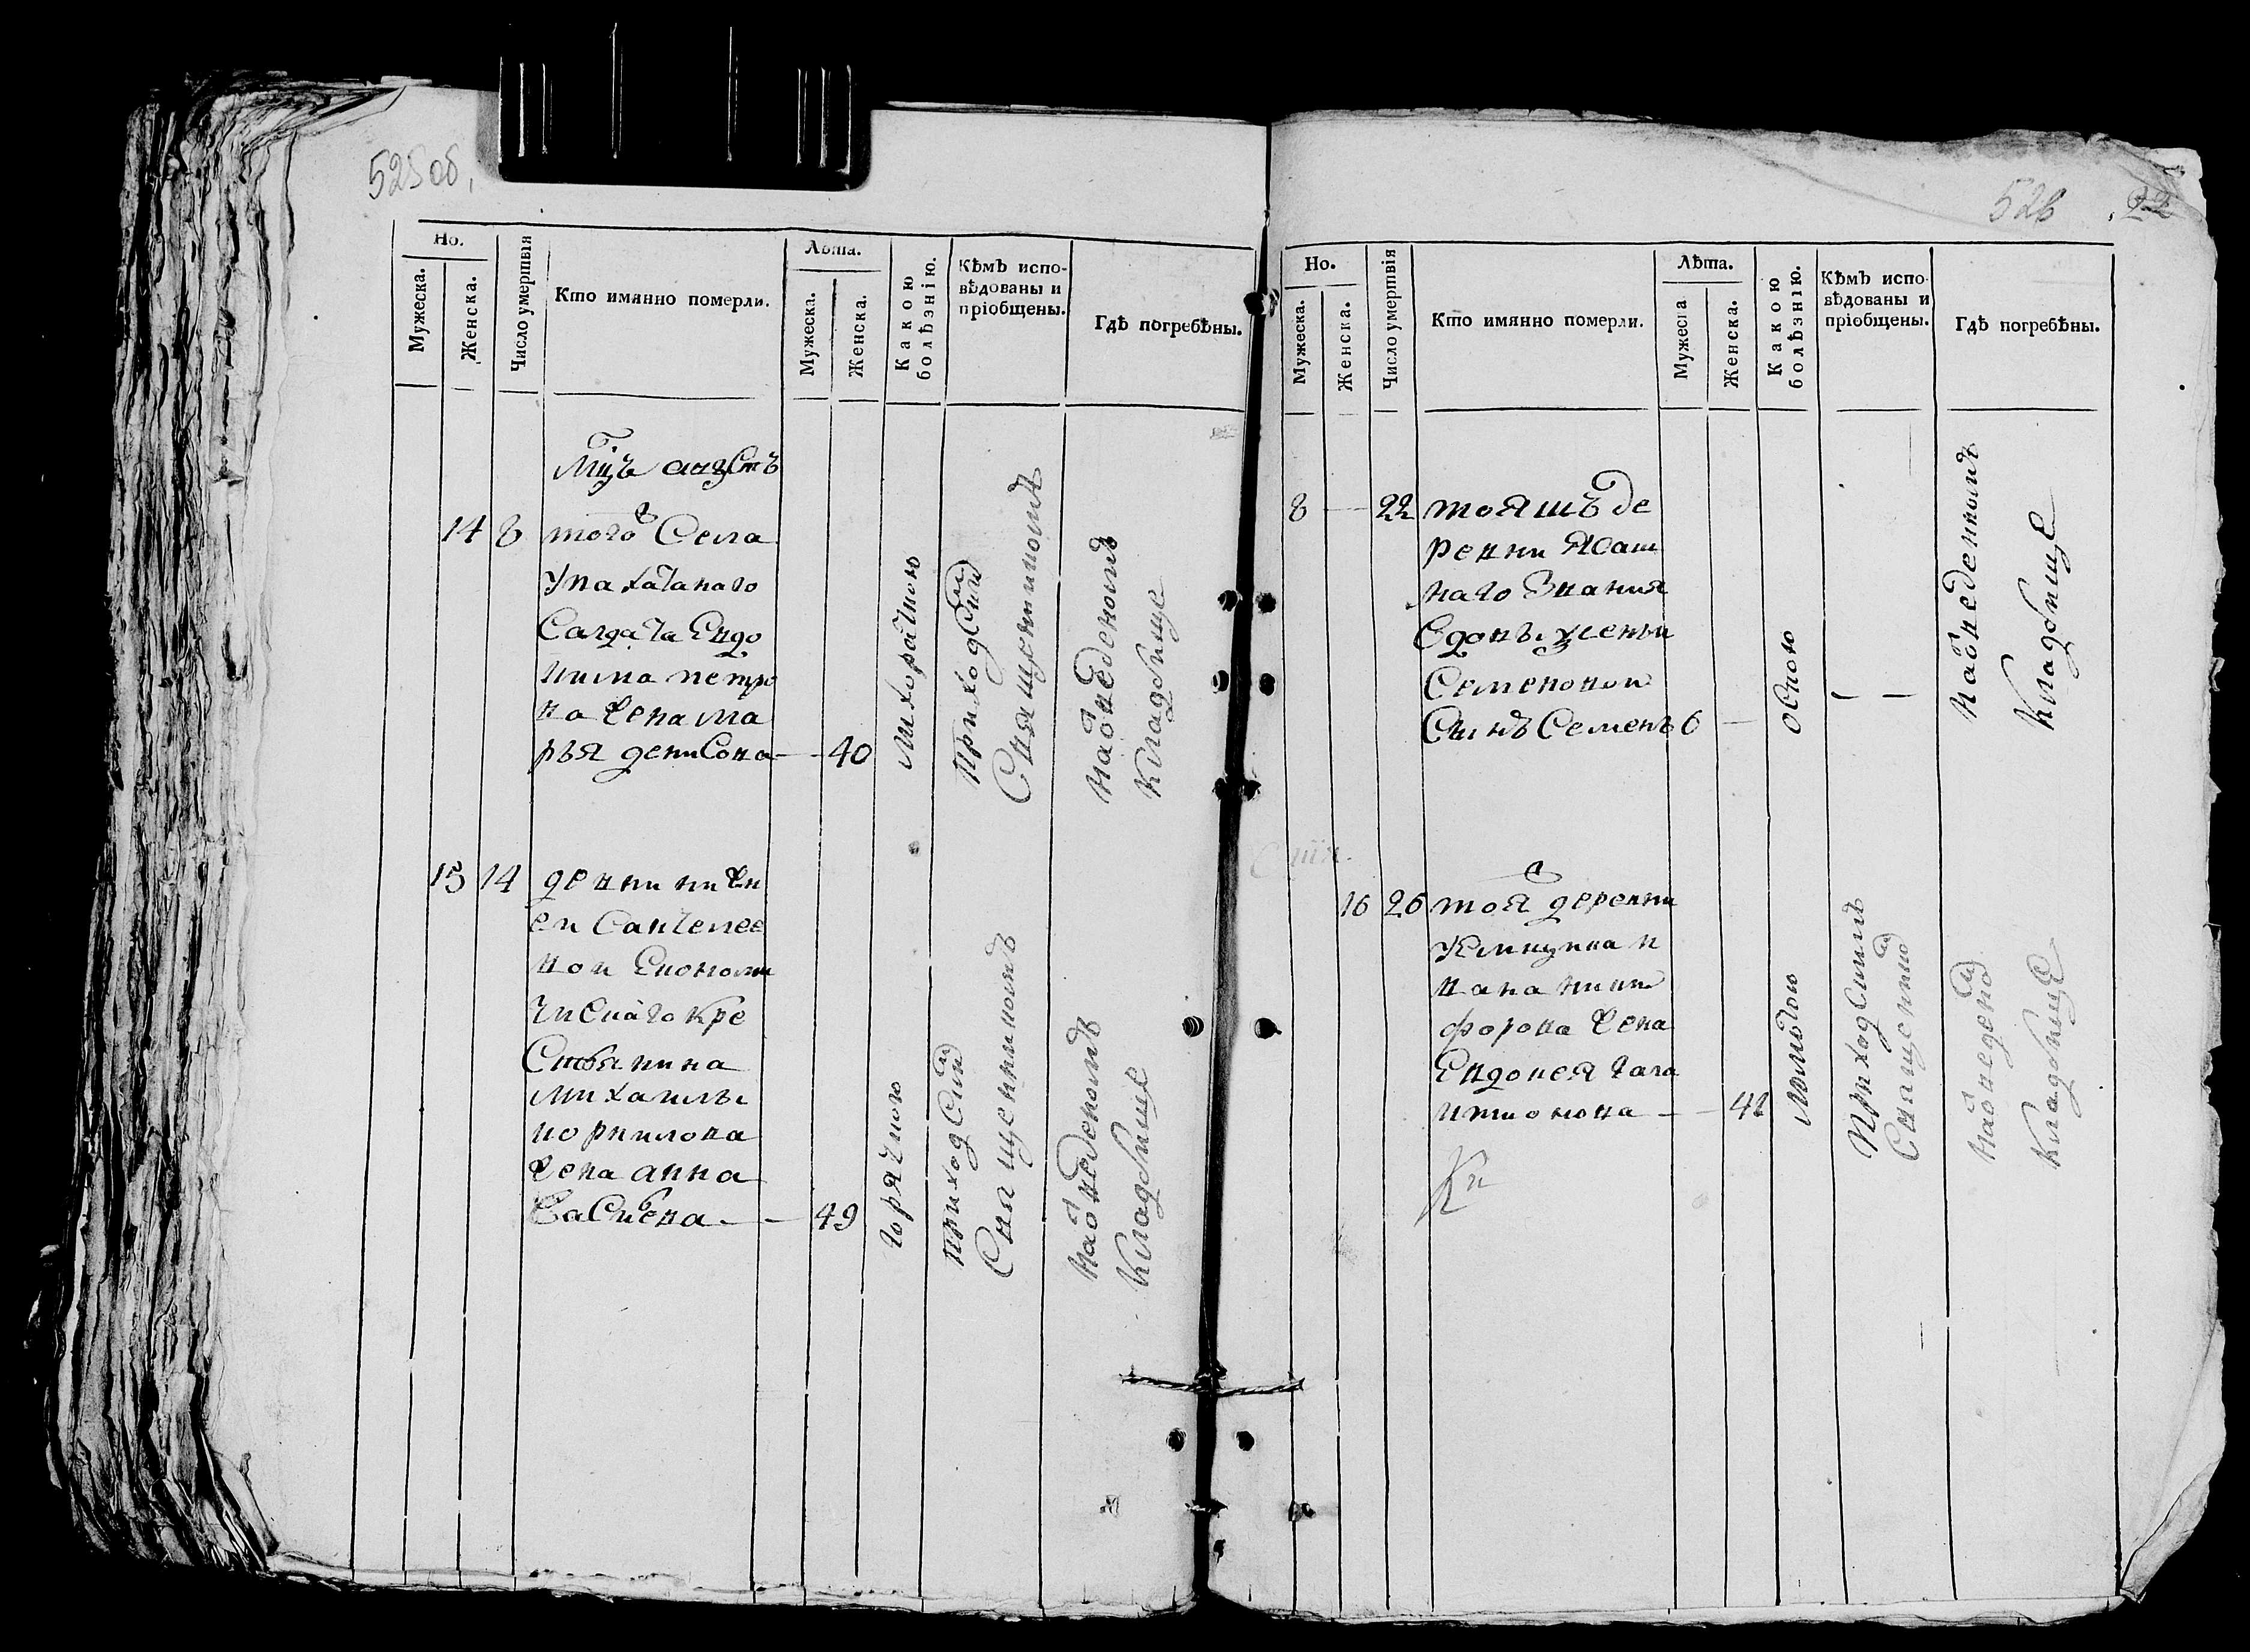 525 об.
Но.
Мужеска.
Женска.
Число умертвія
Кто имянно померли.
Лѣта.
Мужеска.
Женска.
Какою
болѣзнію.
Кѣмъ испо-
вѣдованы и
пріобщены.
Гдѣ погребѣны.
Мцъ августъ
14 8 тогоже Села
Салдата Евдо
кима петро
ва жена ма
рья денисова — 40
Приход Ским
Священникомъ
На отведеномъ
Кладбище
15 14
номи
ческаго кре
Стьянина
михаилы
корнилова
жена анна
Савиена — 49
горячкою
приход Ским
Священникомъ
На отведеномъ
Кладбище
526 22
Но.
Мужеска.
Женска.
Число умертвія
Кто имянно померли.
Лѣта.
Мужеска
Женска.
Какою
болѣзнію.
Кѣмъ испо-
вѣдованы и
пріобщены.
Гдѣ погребѣны.
8 — 22 тояжъ де
ревни Ясаш
наго Знания
Вдовы
Семеновой
Сынъ Семенъ 6 —
оспою
— —
На отведенномъ
Кладбище
16 26 тояже деревни
вана ники
форова жена
Евдокея гала
ктионова — 41
Приход Скимъ
Священико
На отведено
Кладбище